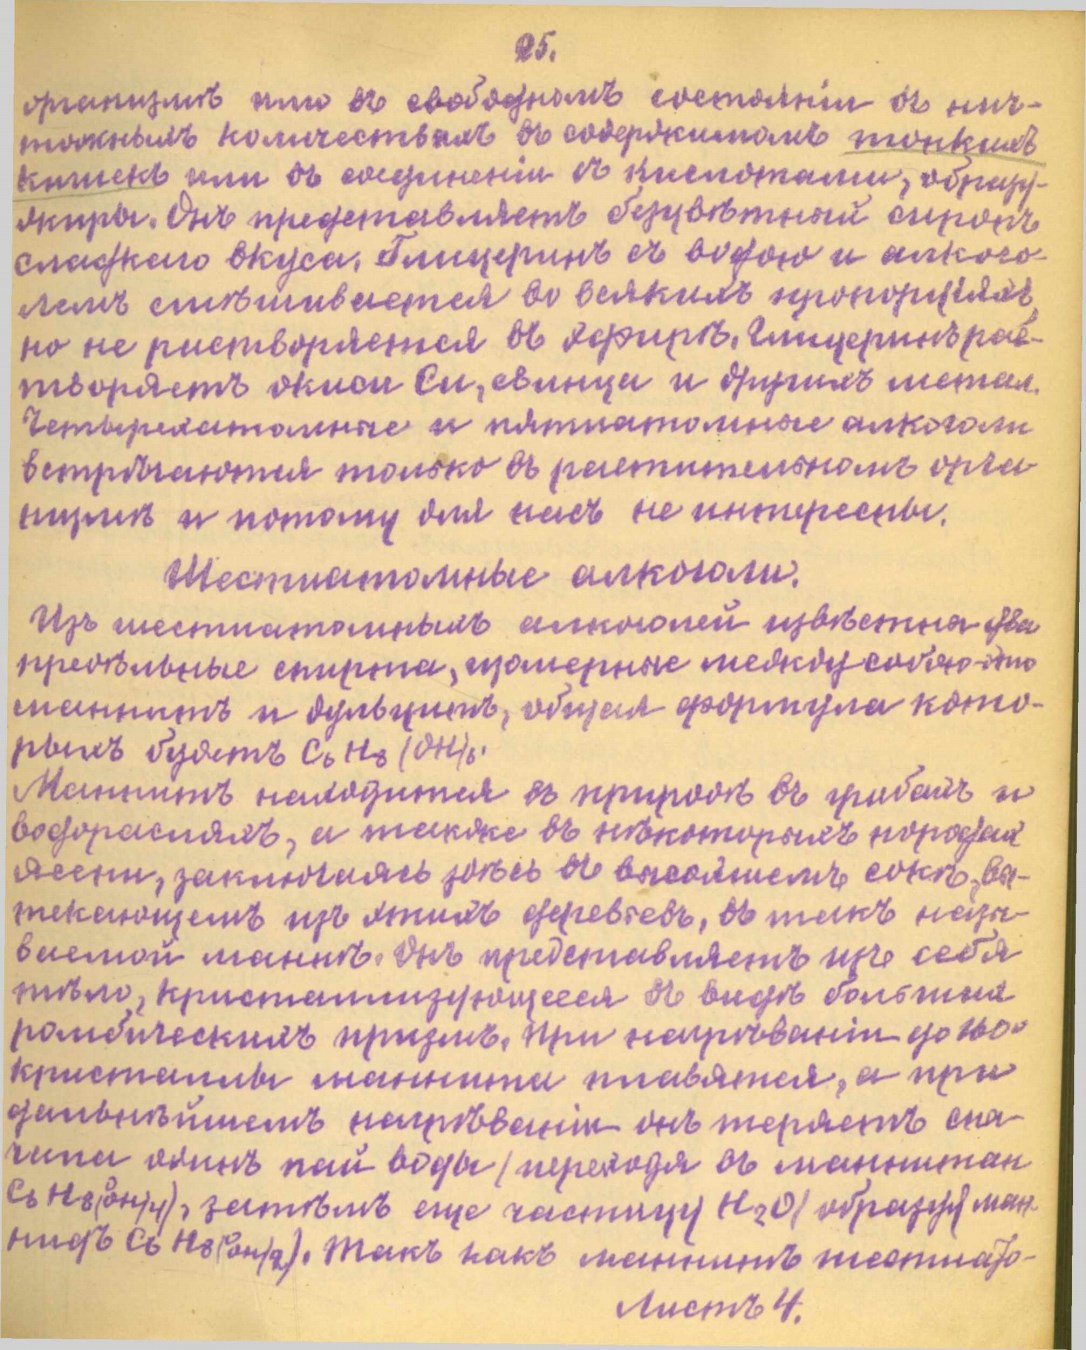 25.
организмѣ или въ свободномъ состояніи въ нич-
тожныхъ количествахъ въ содержимомъ тонкихъ
кишекъ или въ соединеніи съ кислотами, образуя
жиры. Онъ представляетъ безцвѣтный сиропъ
сладкаго вкуса. Глицеринъ съ водою и алкого-
лемъ смѣшивается во всякихъ пропорціяхъ,
но не растворяется въ эфирѣ. Глицеринъ рас-
творяетъ окиси Cu, свинца и другихъ метал.
Четырехатомные и пятиатомные алкоголи
встрѣчаются только въ растительномъ орга-
низмѣ и потому для насъ не интересны.
Шестиатомные алкоголи.
Изъ шестиатомныхъ алкоголей извѣстна два
предѣльные спирта, изомерные между собою-это
маннитъ и дульцитъ, общая формула кото-
рыхъ будетъ C6 H8 (OH)6.
Маннитъ находится въ природѣ въ грибахъ и
водоросляхъ, а также въ нѣкоторыхъ породахъ
ясени, заключаясь здѣсь въ высохшемъ сокѣ, вы-
текающемъ изъ этихъ деревьевъ, въ такъ назы-
ваемой маннѣ. Онъ представляетъ изъ себя
тѣло, кристаллизующееся въ видѣ большихъ
ромбическихъ призмъ. При нагрѣваніи до
кристаллы маннита плавятся, а при
дальнѣйшемъ нагрѣваніи онъ теряетъ сна-
чала одинъ пай воды (переходя въ маннитан
C6 H8(OH)4), затѣмъ еще частицу H2O (образуя ман-
нидъ C6 H8(OH)2). Такъ какъ маннитъ шестиато-
Листъ 4.